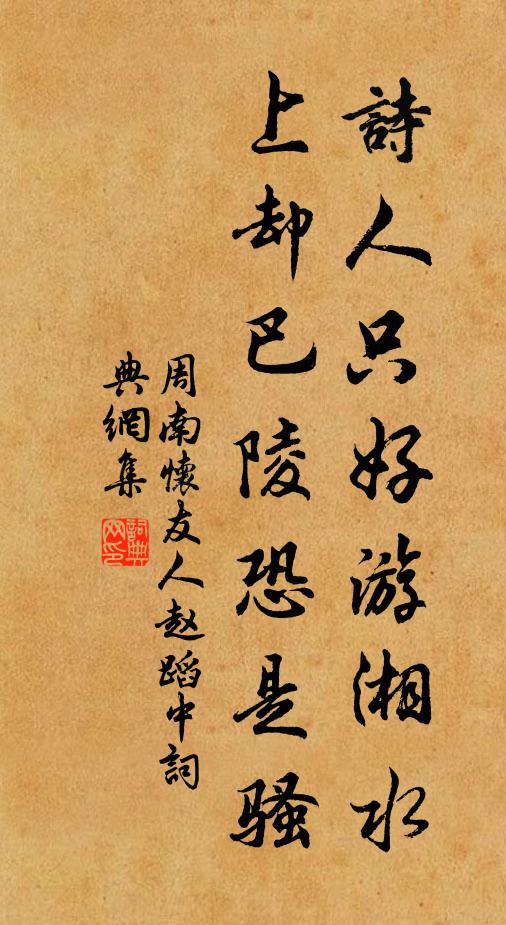 詩人只好游湘水
上却巴陵恐是骚
周南懷友人赵蹈中詞
典網集
詞典
网印